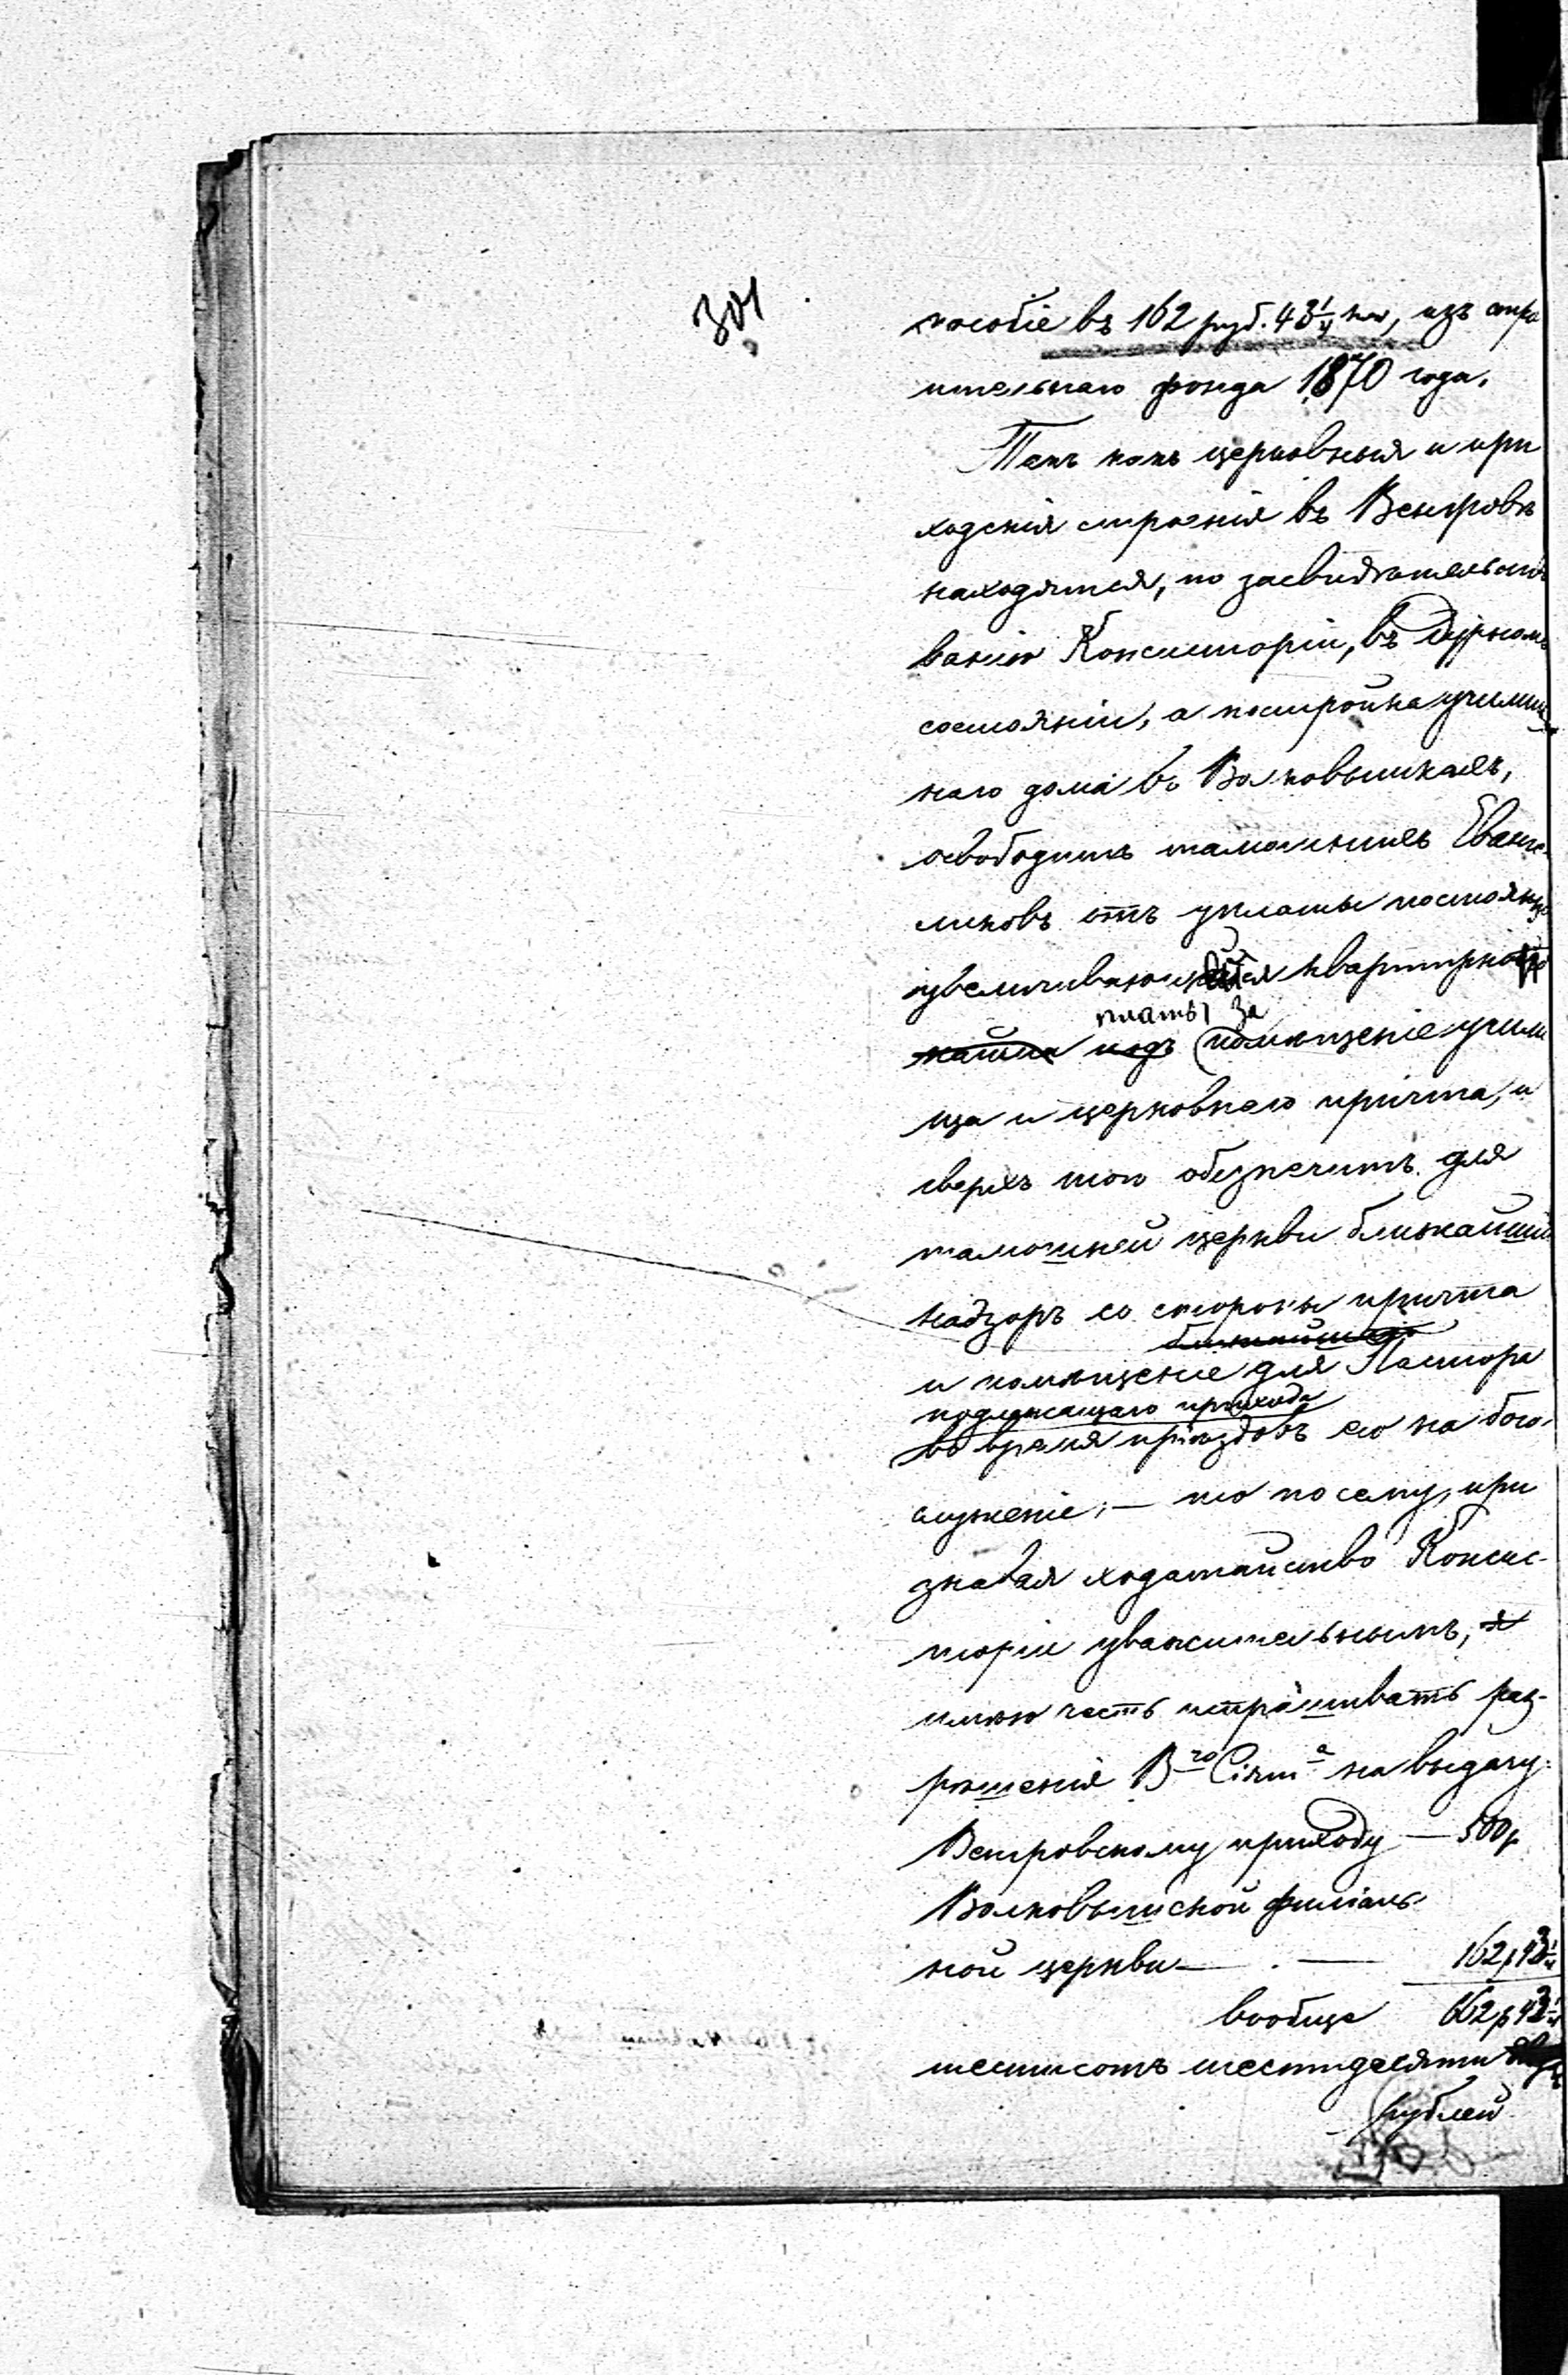 301
пособіе въ 162 руб. 43¼ коп, изъ стро
ительнаго фонда 1870 года.
Такъ какъ церковныя и при
ходскія строенія въ Венгровѣ
находятся, по засвидѣтельство
ванію Консисторіи, въ дурномъ
состояніи, а постройка училищ
наго дома въ Волковышкахъ,
освободитъ тамошнихъ Еванге
ликовъ отъ уплаты постоянно
увеличивающейся квартирной
платы за
найма подъ помѣщеніе учили
ща и церковнаго причта, и
сверхъ того обезпечитъ для
тамошней церкви ближайшій
надзоръ со стороны причта
ближайшаго
и помѣщеніе для Пастора
подлежащаго прихода
во время пріѣздовъ его на бого-
служеніе; — то посему, при
знавая ходатайство Консис-
торіи уважительнымъ, я
имѣю честь испрашивать раз-
рѣшенія В го Сіят а на выдачу:
Венгровскому приходу — 500 р
Волковышской филіаль-
ной церкви — . — 162 р 43¼
вообще 662 р 43¼
шестисотъ шестидесяти двухъ
рублей